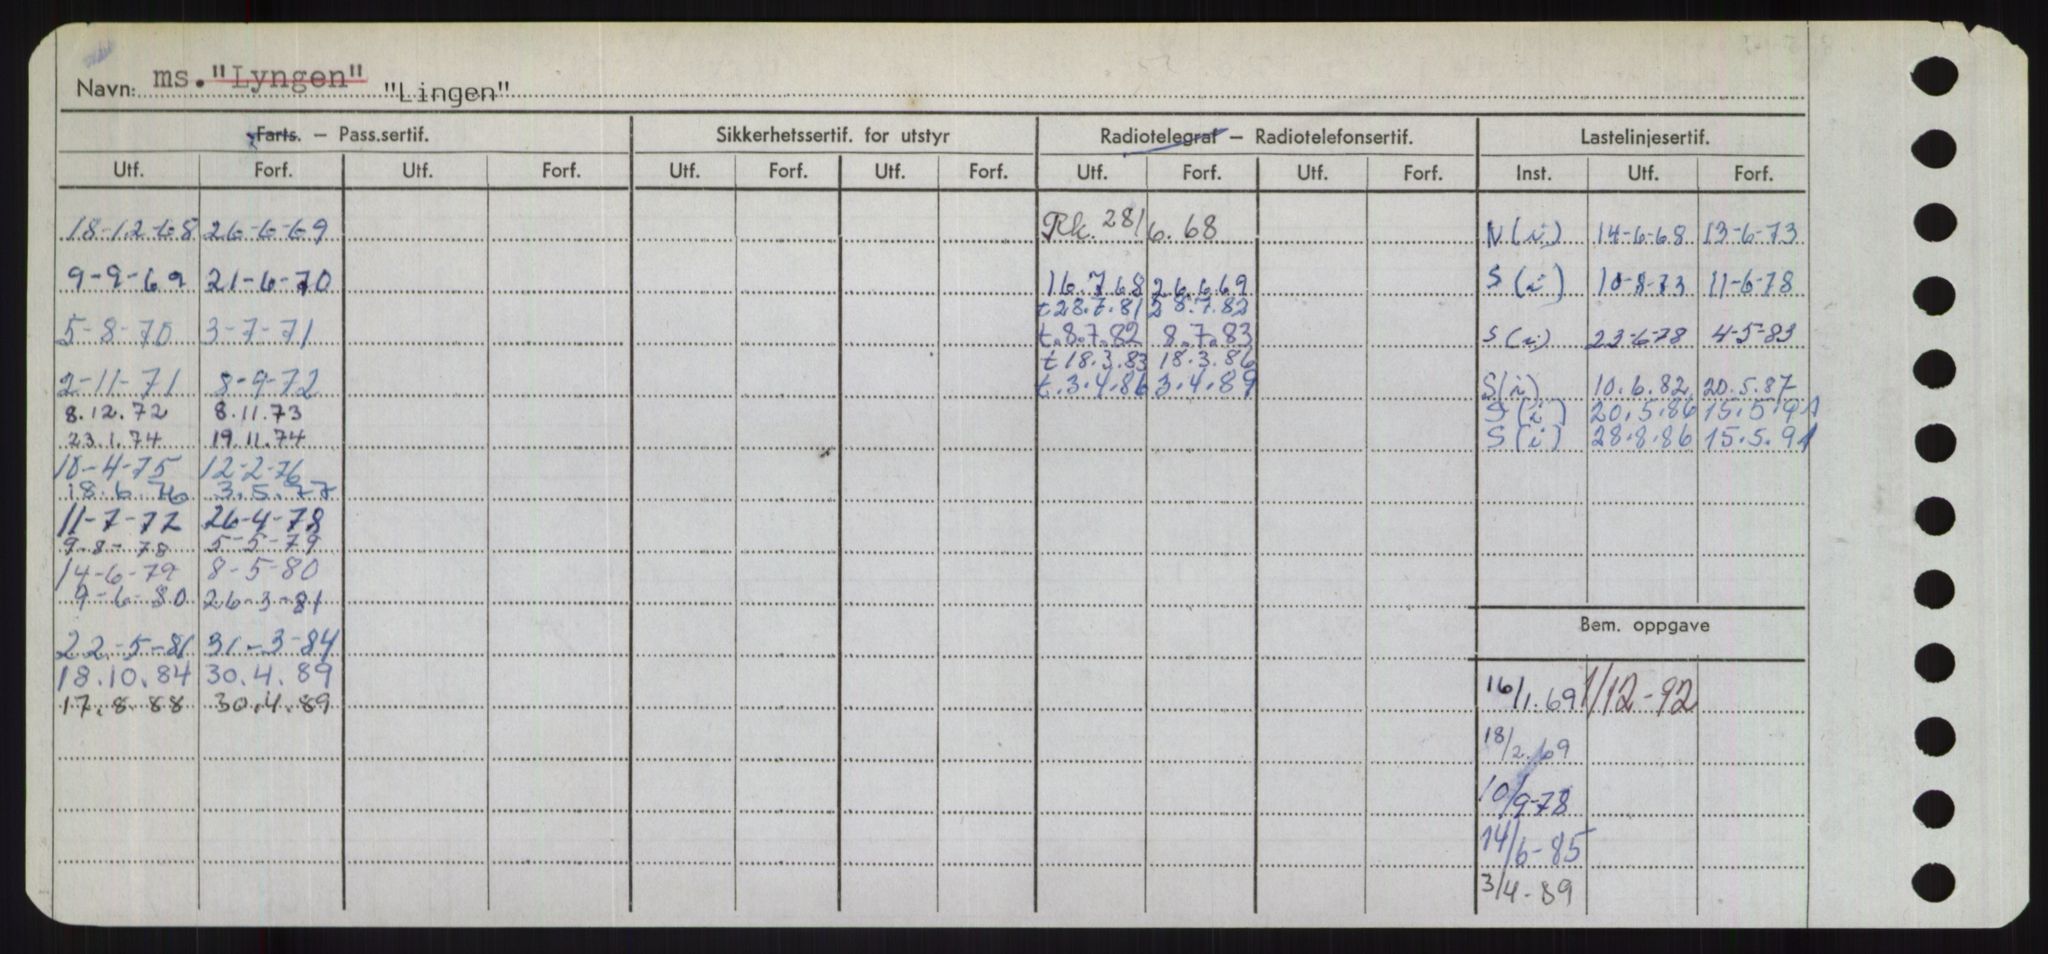 Navn: ms. "Lyngen" "Lingen"
Farts. — Pass.sertif. Sikkerhetssertif. for utstyr Radiotelegraf — Radiotelefonsertif. Lastelinjesertif.
Utf. Forf. Utf. Forf. Utf. Forf. Utf. Forf. Utf. Forf. Utf. Forf. Inst. Utf. Forf.
18-12-68 26-6-69 Rk. 28/6.68 N(i) 14-6-68 13-6-73
9-9-69 21-6-70 16.7.68 26.6.69 S(i) 10-8-73 11-6-78
t 28.7.81 28.7.82
5-8-70 3-7-71 t.8.7.82 8.7.83 S(i) 23-6-78 4-5-83
t 18.3.83 18.3.86
2-11-71 8-9-72 t.3.4.86 3.4.89 S(i) 10.6.82 20.5.87
8.12.72 8.11.73 S(i) 20.5.86 15.5.91
23.1.74 19.11.74 S(i) 28.8.86 15.5.91
10-4-75 12-2-76
18.6.76 3.5.77
11-7-77 26-4-78
9-8-78 5-5-79
14-6-79 8-5-80
9-6-80 26-3-81
Bem. oppgave
22-5-81 31-3-84
18.10.84 30.4.89 16/1.69 1/12-92
17.8.88 30.4.89
18/2.69
10/9-78
14/6-85
3/4-89